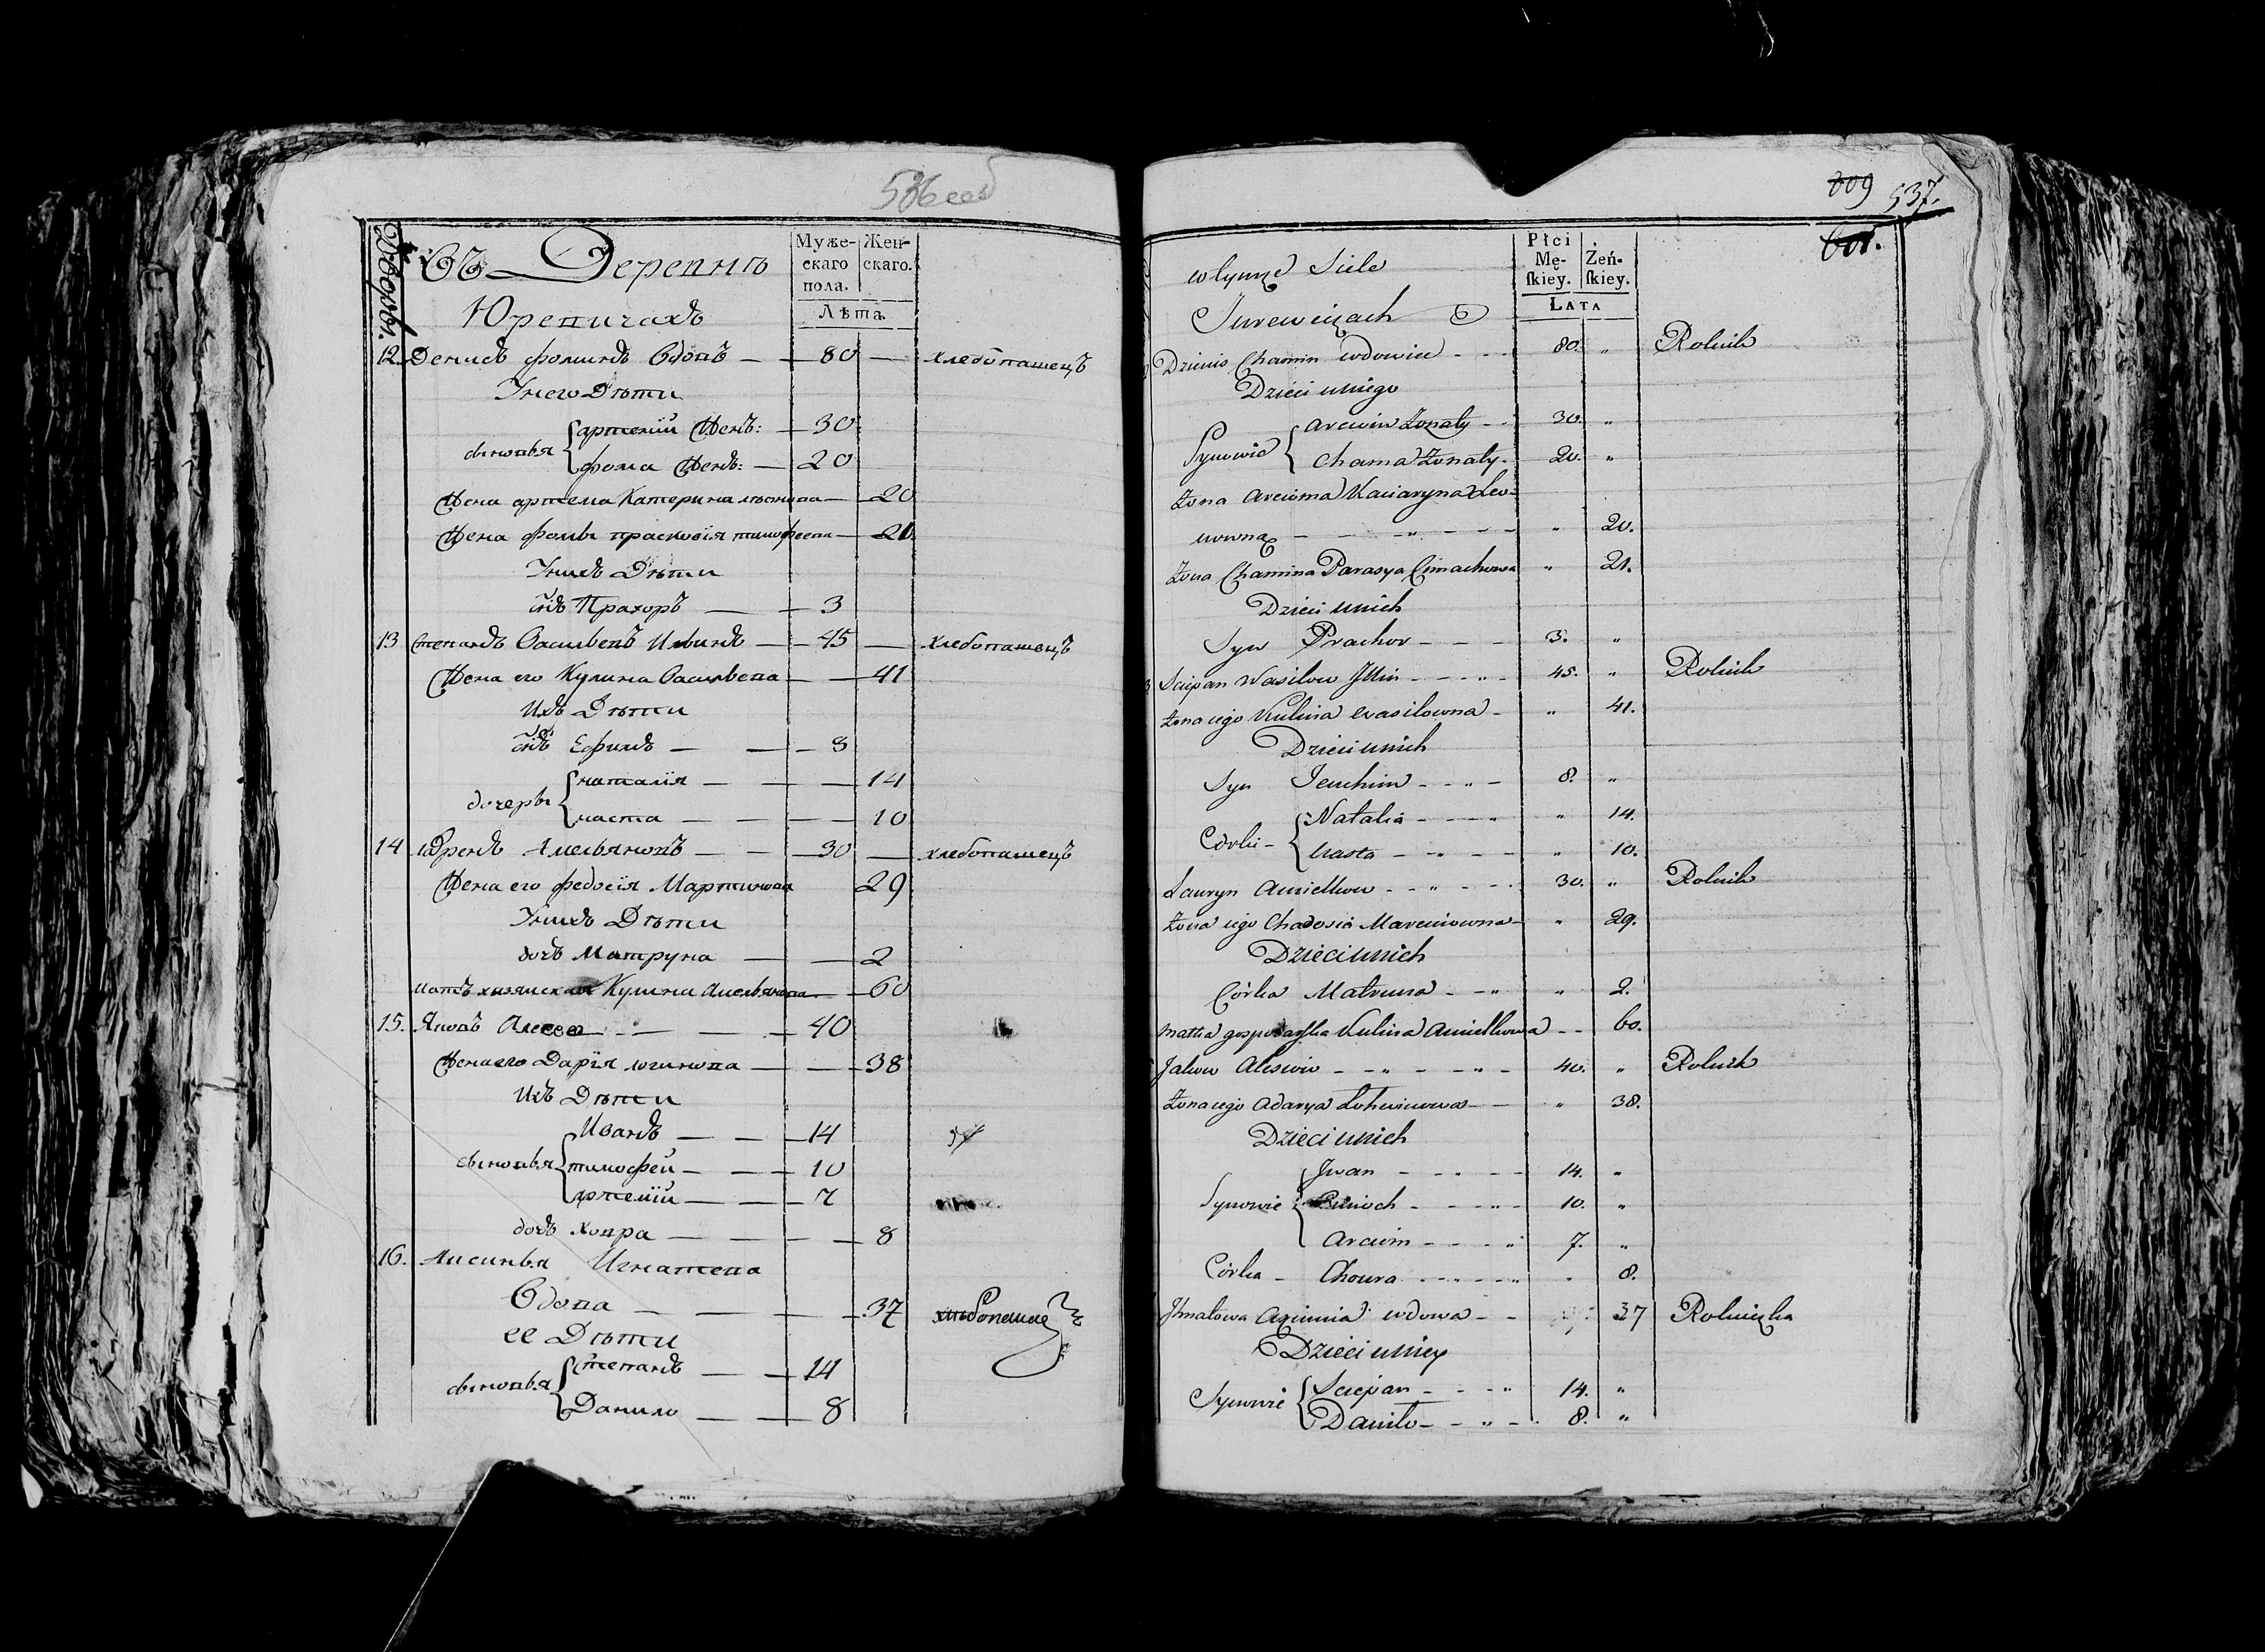 536 об
Дворы.
Въ Деревнѣ
Юревичахъ
Муже-
скаго
пола.
Жен-
скаго.
Лѣта.
12. Денисъ фоминъ вдовъ — 80 — хлебопашецъ
У него Дѣти
сыновья { артемiй Жен: — 30
фома Жен: — 20
Жена артема Катерина — 20
Жена фомы прасковiя тимофеева — 21
У нихъ Дѣти
сн̃ъ Прахоръ — 3
13 степанъ Васильевъ Ильинъ — 45 — хлебопашецъ
Жена его Кулина Васильева — 41
Ихъ Дѣти
сн̃ъ Ефимъ — 8
дочеры { наталiя — 14
наста — 10
14 лавренъ Амельяновъ — 30 — хлебопашецъ
Жена его федосiя Мартинова 29
У нихъ Дѣти
дочь Матруна — 2
мать хазяиская Кулина Амельянова — 60
15. Яковъ — 40
Жена его Дарiя логинова — 38
Ихъ Дѣти
сыновья { Иванъ — 14
тимофей — 10
артемiй — 7
дочь Ховра — 8
16. Аксинья Игнатева
Вдова — 37
ее Дѣти
сыновья { степанъ — 14
Данило — 8
809 537.
601.
w tymże Siele
Jurewiczach
Płci
Mę-
ſkiey.
Żeń-
ſkiey.
LATA
Dzienis Chamin wdowiec - - 80. „ Rolnik
Dzieci u niego
Synowie { Arciom Żonaty - - 30. „
Chama Żonaty - 20. „
Żona Arcioma Kaciaryna Leo-
nowna - - „ - - „ 20.
Żona Chamina Parasya Cimachowa „ 21.
Dzieci u nich
Syn Prachor - - - 3. „
Sciepan Wasilow Illin - - - „ - 45. „ Rolnik
Żona iego Kulina Wasilowna - „ 41.
Dzieci u nich
Syn Jeuchim - - „ - 8. „
Córki - { Natalia - - - „ „ 14.
Nasta - - „ - - „ 10.
Lauryn Amielkow - - „ - - 30. „ Rolnik
Żona iego Chadosia Marcinowna - „ 29.
Dzieci u nich
Córka Matruna - - „ „ 2.
Matka gospodarska Kulina Amielkowa - - 60.
Jakow Alesiow - - „ - - „ - 40. „ Rolnik
Żona iego Adarya Lohwinowa - - „ 38.
Dzieci u nich
Synowie { Jwan - - „ - - 14. „
Cimoch - - - „ - 10. „
Arciom - - - „ 7. „
Córka - Choura - - „ - - „ „ 8.
Ihnatowa Axinnia wdowa - - 37 Rolniczka
Dzieci u niey
Synowie { Sciepan - - - „ 14. „
Daniło - - „ - 8. „